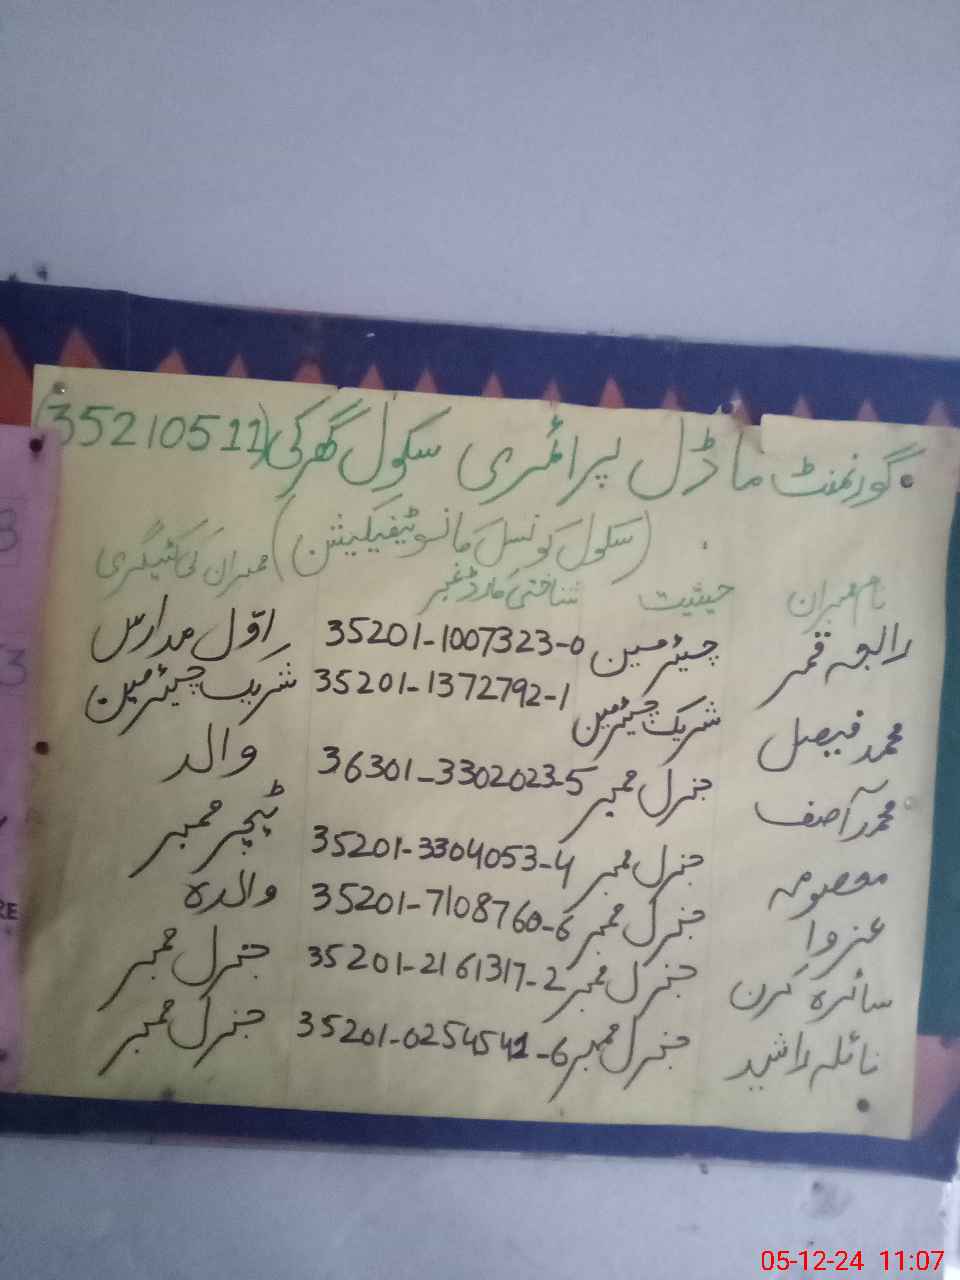 گورنمنٹ ماڈل پرائمری سکول گھرکی (35210511)
(سکول کونسل کا نوٹیفیکیشن)
نام ممبران حیثیت شناختی کارڈ نمبر ممبران کی کٹیگری
رابعہ قمر چیئرمین 35201-1007323-0 اوّل مدارس
محمد فیصل شریک چیئرمین 35201-1372792-1 شریک چیئرمین
محمد آصف جنرل ممبر 36301-3302023-5 والد
معصومہ جنرل ممبر 35201-3304053-4 ٹیچر ممبر
عزوا جنرل ممبر 35201-7108760-6 والدہ
سائرہ کرن جنرل ممبر 35201-2161317-2 جنرل ممبر
نائلہ راشید جنرل ممبر 35201-0254541-6 جنرل ممبر
05-12-24 11:07